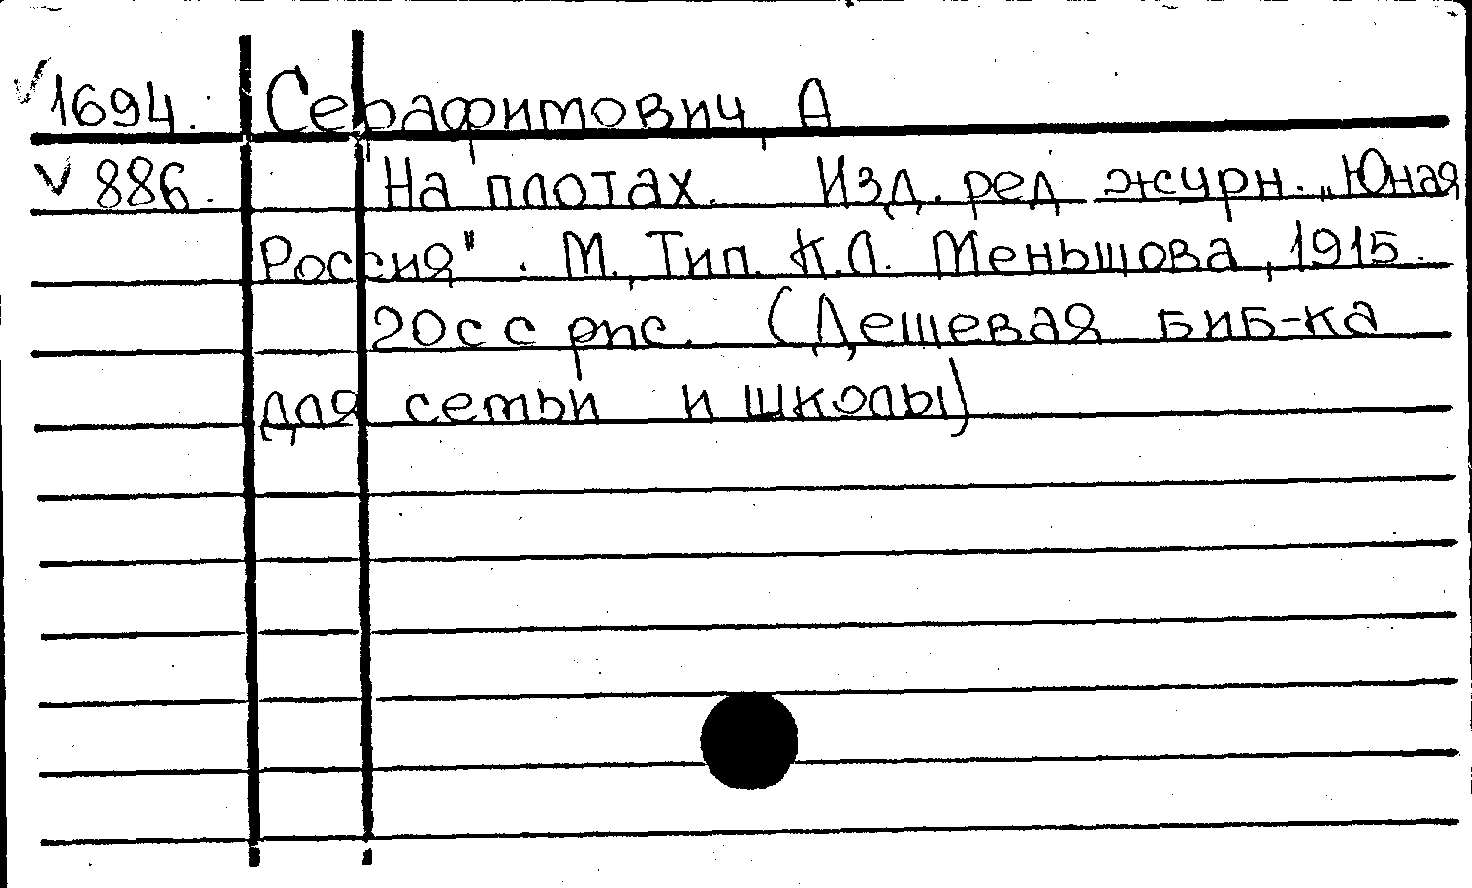 √1694. Серафимович, А
√ 886. На плотах. Изд. ред журн. „Юная
Россия". М., Тип. К.Л. Меньшова, 1915.
20с с рис. (Дешевая биб-ка
для семьи и школы)